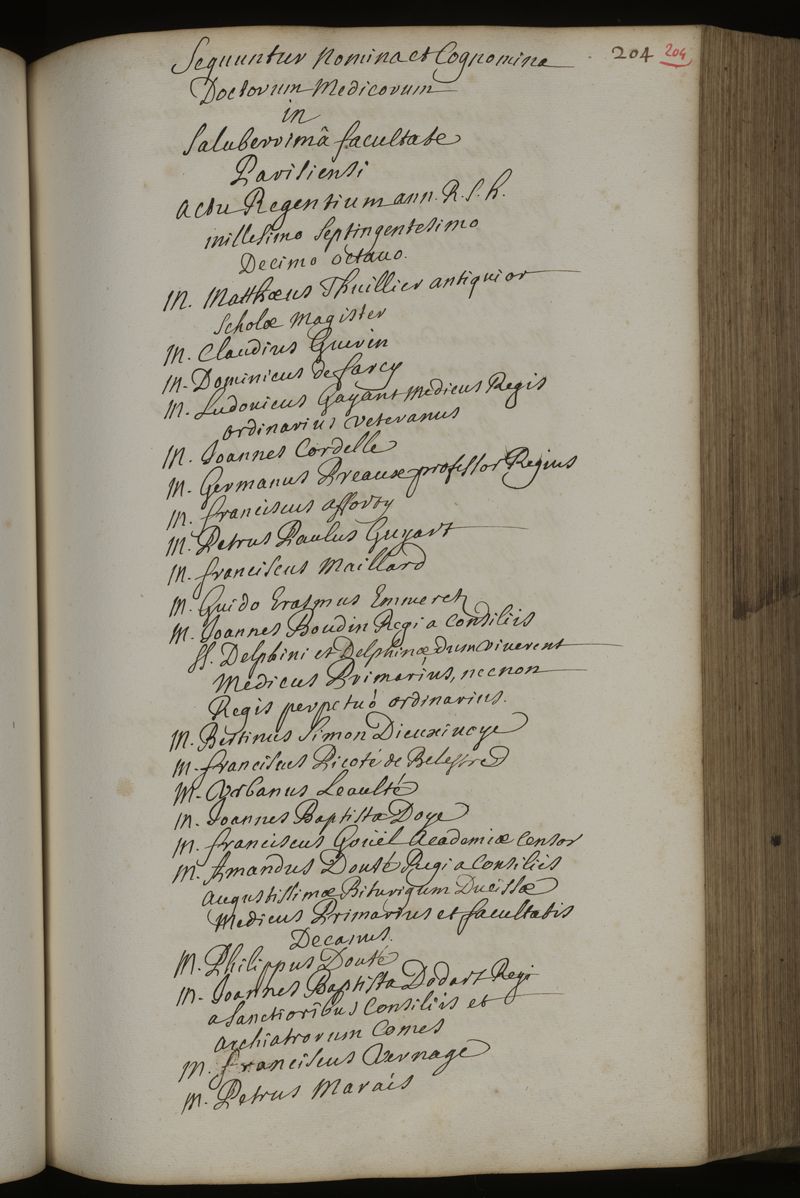 204 204
Sequuntur Nomina et Cognomina
Doctorum Medicorum
in
Saluberrimâ facultate
Parisiensi
actu Regentium ann. R. S. h.
millesimo Septingentesimo
Decimo octavo.
M. Matthæus Thuillier antiquior
Scholæ Magister
M. Claudius Guerin
M. Dominicus de farcy
M. Ludovicus Gayant Medicus Regis
ordinarius veteranus
M. Joannes Cordelle
M. Germanus Preaux professor Regius
M. franciscus afforty
M. Petrus Paulus Guyart
M. franciscus Maillard
M. Guido Erasmus Emmerch
M. Joannes Boudin Regi a Consiliis
SS. Delphini et Delphinæ dum viverent
Medicus Primarius, necnon
Regis perpetuó ordinarius.
M. Bertinus Simon Dieuxivoye
M. franciscus Picoté de Belestre
M. Urbanus Leaulté
M. Joannes Baptista Doye
M. franciscus Goüel Academiæ Censor
M. Armandus Douté Regi a Consiliis
augustissimæ Biturigum Ducissæ
Medicus Primarius et facultatis
Decanus.
M. Philippus Douté
M. Joannes Baptista Dodart Regi
a Sanctioribus Consiliis et
archiatrorum Comes
M. franciscus Vernage
M. Petrus Marais